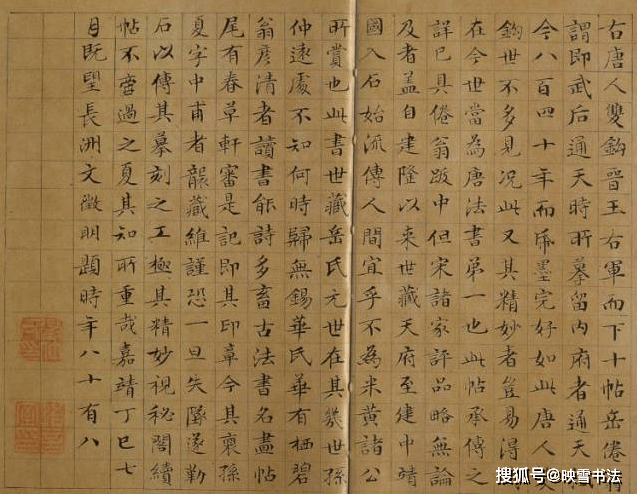 右唐人雙鉤晉王右軍而下十帖岳倦翁
謂即武后通天時所摹留內府者通天
今八百四十年而紙墨完好如此唐人
鉤世不多見況此又其精妙者豈易得
在今世當為唐法書第一也此帖承傳之
詳已具倦翁跋中但宋諸家評品略無論
及者蓋自建隆以來世藏天府至建中靖
國入石始流傳人間宜乎不為米黃諸公
所賞也此書世藏岳氏元世在其幾世孫
仲遠處不知何時歸無錫華氏華有栖碧
翁彥清者讀書能詩多畜古法書名畫帖
尾有春草軒審是記即其印章今其裔孫
夏字中甫者襲藏維謹恐一旦失墜遂勒
石以傳其摹刻之工極其精妙視秘閣續
帖不啻過之夏其知所重哉嘉靖丁巳七
月既望長洲文徵明題時年八十有八
搜狐号@映雪书法